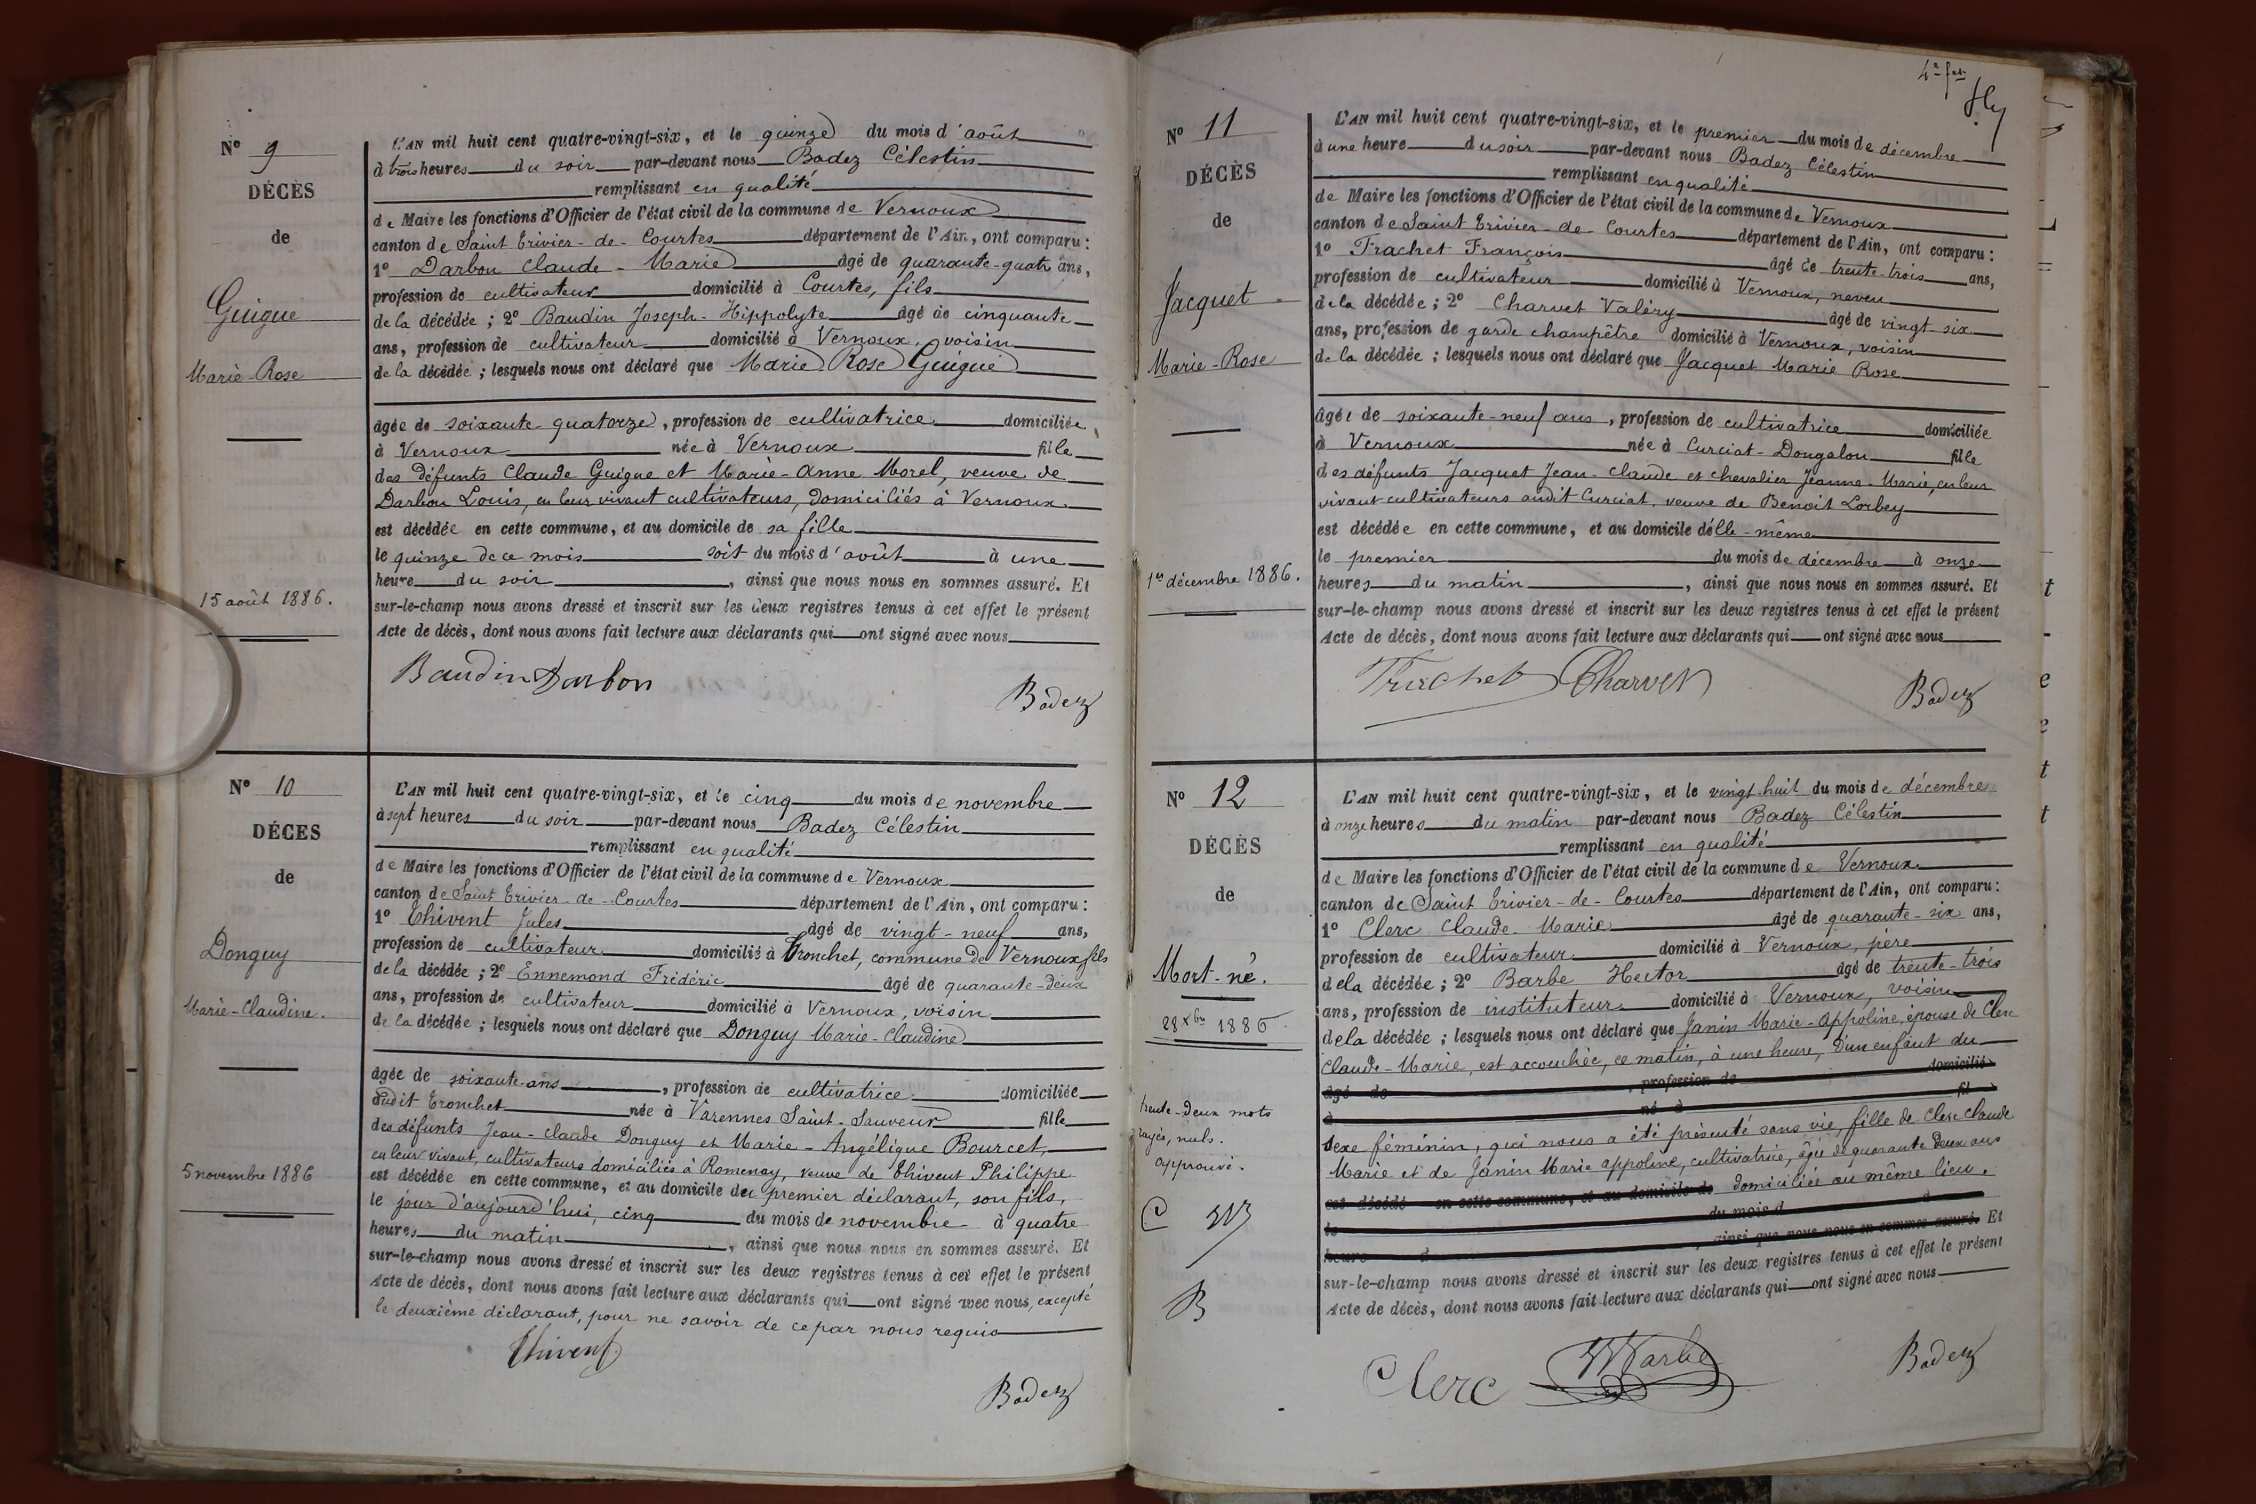 Nº 9
DÉCÈS
de
Guigue
Marie-Rose
15 août 1886.
L'AN mil huit cent quatre-vingt-six, et le quinze du mois d'août
à trois heures du soir par-devant nous Badez Célestin
remplissant en qualité
de Maire les fonctions d'Officier de l'état civil de la commune de Vernoux
canton de Saint Trivier-de-Courtes département de l'Ain, ont comparu :
1º Darbon Claude-Marie âgé de quarante-quatre ans,
profession de cultivateur domicilié à Courtes, fils
de la décédée ; 2º Baudin Joseph-Hippolyte âgé de cinquante
ans, profession de cultivateur domicilié à Vernoux, voisin
de la décédée ; lesquels nous ont déclaré que Marie Rose Guigue
âgée de soixante quatorze, profession de cultivatrice domiciliée
à Vernoux née à Vernoux fille
des défunts Claude Guigue et Marie-Anne Morel, veuve de
Darbon Louis, en leur vivant cultivateurs, domiciliés à Vernoux.
est décédée en cette commune, et au domicile de sa fille
le quinze de ce mois soit du mois d'août à une
heure du soir, ainsi que nous nous en sommes assuré. Et
sur-le-champ nous avons dressé et inscrit sur les deux registres tenus à cet effet le présent
Acte de décès, dont nous avons fait lecture aux déclarants qui ont signé avec nous
Baudin Darbon
Badez
Nº 10
DÉCES
de
Donguy
Marie-Claudine.
5 novembre 1886
L'AN mil huit cent quatre-vingt-six, et le cinq du mois de novembre
à sept heures du soir par-devant nous Badez Célestin
remplissant en qualité
de Maire les fonctions d'Officier de l'état civil de la commune de Vernoux
canton de Saint Trivier-de-Courtes département de l'Ain, ont comparu :
1º Thivent Jules âgé de vingt-neuf ans,
profession de cultivateur domicilié à Tronchet, commune de Vernoux fils
de la décédée ; 2º Ennemond Frédéric âgé de quarante-deux
ans, profession de cultivateur domicilié à Vernoux, voisin
de la décédée ; lesquels nous ont déclaré que Donguy Marie-Claudine
âgée de soixante ans, profession de cultivatrice domiciliée
dudit Tronchet née à Varennes Saint-Sauveur fille
des défunts Jean-Claude Donguy et Marie-Angélique Bourcet,
en leur vivant, cultivateurs domiciliés à Romenay, veuve de Thivent Philippe
est décédée en cette commune, et au domicile du premier déclarant, son fils,
le jour d'aujourd'hui, cinq du mois de novembre à quatre
heures du matin, ainsi que nous nous en sommes assuré. Et
sur-le-champ nous avons dressé et inscrit sur les deux registres tenus à cet effet le présent
Acte de décès, dont nous avons fait lecture aux déclarants qui ont signé avec nous, excepté
le deuxième déclarant, pour ne savoir de ce par nous requis
Thivent
Badez
Nº 11
DÉCÈS
de
Jacquet
Marie-Rose
1er décembre 1886.
L'AN mil huit cent quatre-vingt-six, et le premier du mois de décembre
à une heure du soir par-devant nous Badez Célestin
remplissant en qualité
de Maire les fonctions d'Officier de l'état civil de la commune de Vernoux
canton de Saint Trivier-de-Courtes département de l'Ain, ont comparu :
1º Trachet François âgé de trente-trois ans,
profession de cultivateur domicilié à Vernoux, neveu
de la décédée ; 2º Charvet Valéry âgé de vingt six
ans, profession de garde champêtre domicilié à Vernoux, voisin
de la décédée ; lesquels nous ont déclaré que Jacquet Marie Rose
âgée de soixante-neuf ans, profession de cultivatrice domiciliée
à Vernoux née à Curciat-Dongalon fille
des défunts Jacquet Jean-Claude et Chevalier Jeanne-Marie, en leur
vivant cultivateurs audit Curciat, veuve de Benoit Lorbey
est décédée en cette commune, et au domicile d'elle-même
le premier du mois de décembre à onze
heures du matin, ainsi que nous nous en sommes assuré. Et
sur-le-champ nous avons dressé et inscrit sur les deux registres tenus à cet effet le présent
Acte de décès, dont nous avons fait lecture aux déclarants qui ont signé avec nous
Trachet Charvet
Badez
Nº 12
DÉCÈS
de
Mort-né.
28 Xbre 1886.
trente-deux mots
rayés, nuls.
approuvé.
C
B
L'AN mil huit cent quatre-vingt-six, et le vingt huit du mois de décembre
à onze heures du matin par-devant nous Badez Célestin
remplissant en qualité
de Maire les fonctions d'Officier de l'état civil de la commune de Vernoux
canton de Saint Trivier-de-Courtes département de l'Ain, ont comparu :
1º Clerc Claude-Marie âgé de quarante-six ans,
profession de cultivateur domicilié à Vernoux, père
de la décédée ; 2º Barbe Hector âgé de trente-trois
ans, profession de instituteur domicilié à Vernoux, voisin
de la décédée ; lesquels nous ont déclaré que Janin Marie-Appoline, épouse de Clerc
Claude-Marie, est accouchée, ce matin, à une heure, d'un enfant du
âgé de, profession de domicilié
à né à fil
sexe féminin, qui nous a été présenté sans vie, fille de Clerc Claude
Marie et de Janin Marie appoline, cultivatrice, âgée de quarante deux ans
est décédé en cette commune, et au domicile de domiciliée au même lieu.
le du mois d à
heure d, ainsi que nous nous en sommes assuré. Et
sur-le-champ nous avons dressé et inscrit sur les deux registres tenus à cet effet le présent
Acte de décès, dont nous avons fait lecture aux déclarants qui ont signé avec nous
Clerc Barbe
Badez